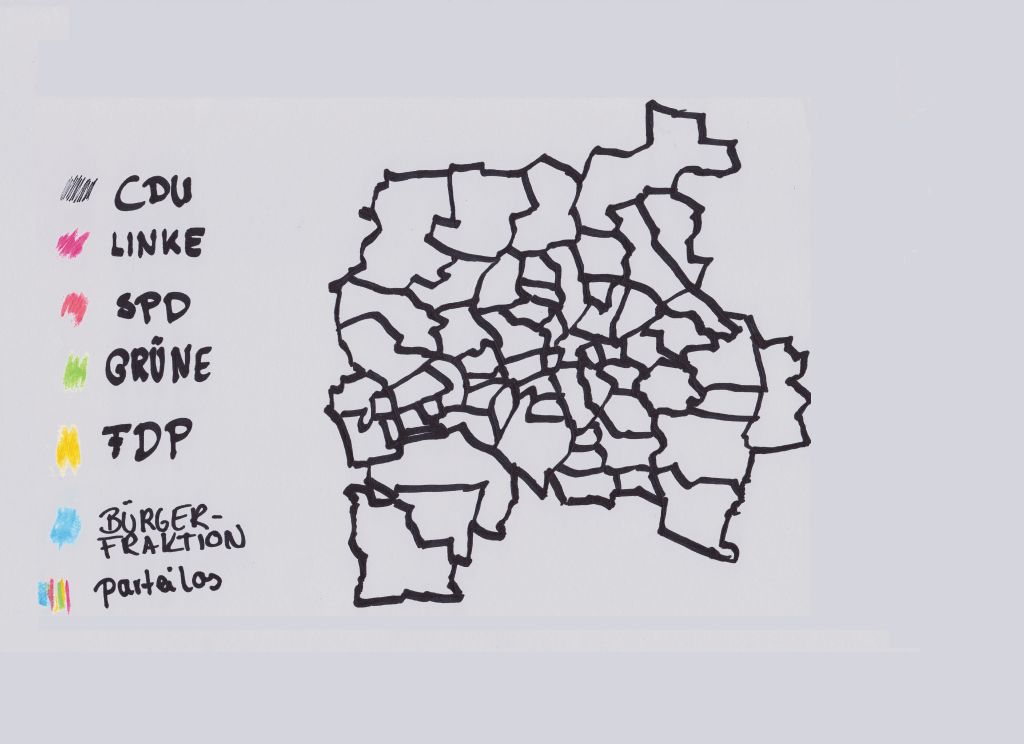 CDU
LINKE
SPD
GRÜNE
FDP
BÜRGER-
FRAKTION
parteilos